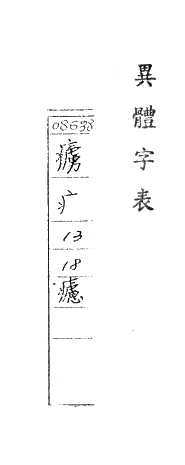 異體字表
08638
疒
13
18